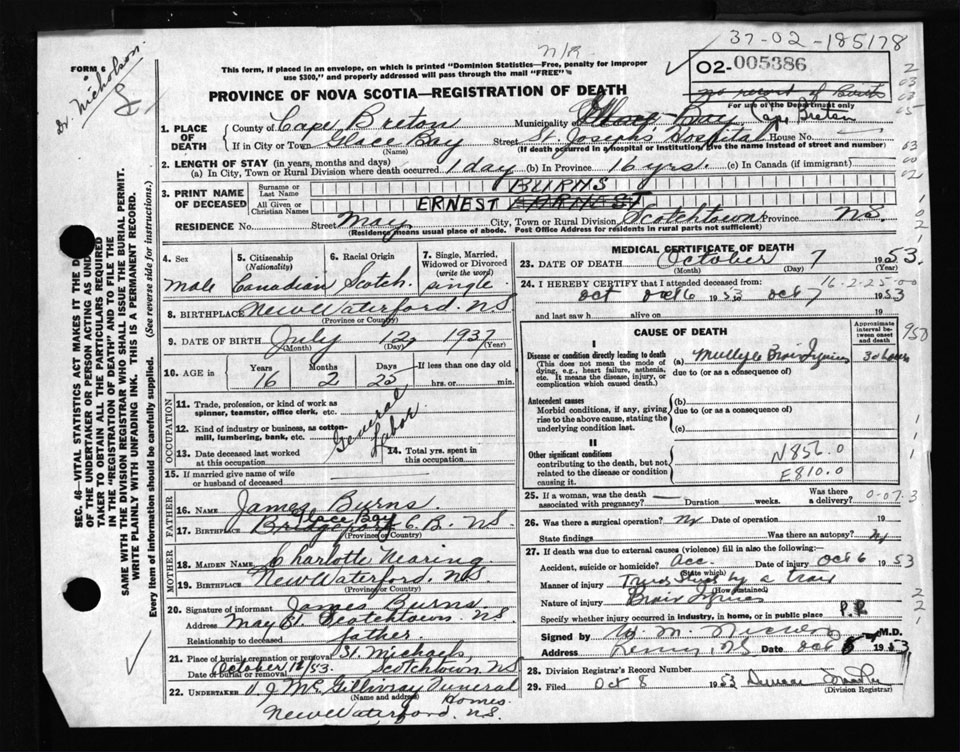 37-02-185178
N/R
FORM 6
Dr. Nicholson
This form, if placed in an envelope, on which is printed "Dominion Statistics—Free, penalty for improper
use $300," and properly addressed will pass through the mail "FREE"
02-005386
no record of Birth
For use of the Department only
PROVINCE OF NOVA SCOTIA—REGISTRATION OF DEATH
1. PLACE OF DEATH
County of Cape Breton Municipality of Glace Bay Cape Breton
If in City or Town Glace Bay Street St. Josephs Hospital House No.
(Name) (If death occurred in a hospital or institution, give the name instead of street and number)
2. LENGTH OF STAY (in years, months and days)
(a) In City, Town or Rural Division where death occurred 1 day (b) In Province 16 yrs. (c) In Canada (if immigrant)
3. PRINT NAME OF DECEASED
Surname or Last Name BURNS
All Given or Christian Names ERNEST
RESIDENCE No. Street May City, Town or Rural Division Scotchtown Province N.S.
(Residence means usual place of abode. Post Office Address for residents in rural parts not sufficient)
4. Sex
male
5. Citizenship (Nationality)
Canadian
6. Racial Origin
Scotch
7. Single, Married, Widowed or Divorced (write the word)
single
8. BIRTHPLACE New Waterford. N.S.
(Province or Country)
9. DATE OF BIRTH July 12 1937
(Month) (Day) (Year)
10. AGE in Years Months Days If less than one day old
16 2 25 hrs. or min.
OCCUPATION
11. Trade, profession, or kind of work as spinner, teamster, office clerk, etc.
General Labor
12. Kind of industry or business, as cotton-mill, lumbering, bank, etc.
13. Date deceased last worked at this occupation
14. Total yrs. spent in this occupation
15. If married give name of wife or husband of deceased
FATHER
16. Name James Burns
17. Birthplace Glace Bay C.B. N.S.
(Province or Country)
MOTHER
18. MAIDEN NAME Charlotte Nearing
19. BIRTHPLACE New Waterford, N.S.
(Province or Country)
20. Signature of informant James Burns
Address May St. Scotchtown N.S.
Relationship to deceased father
21. Place of burial, cremation or removal St. Michaels Scotchtown N.S.
Date of burial or removal October /53.
22. UNDERTAKER V. J. McGillivray Funeral Homes
(Name and address)
New Waterford. N.S.
MEDICAL CERTIFICATE OF DEATH
23. DATE OF DEATH October 7 1953.
(Month) (Day) (Year)
16-2-25-00
24. I HEREBY CERTIFY that I attended deceased from:
Oct Oct 6 1953 Oct 7 1953
and last saw h alive on
CAUSE OF DEATH
Approximate interval between cause and death
I
Disease or condition directly leading to death
(This does not mean the mode of dying, e.g., heart failure, asthenia, etc. It means the disease, injury, or complication which caused death.)
(a) Multiple Brain Injuries 30 hours
due to (or as a consequence of)
Antecedent causes
Morbid conditions, if any, giving rise to the above cause, stating the underlying condition last.
(b)
due to (or as a consequence of)
(c)
II
Other significant conditions
contributing to the death, but not related to the disease or condition causing it.
N856.0
E810.0
25. If a woman, was the death associated with pregnancy? Duration weeks. Was there a delivery?
26. Was there a surgical operation? No Date of operation 19
State findings Was there an autopsy? No
27. If death was due to external causes (violence) fill in also the following:
Accident, suicide or homicide? Acc. Date of injury Oct 6 1953
(State which)
Manner of injury Truck struck by a train
(How sustained)
Nature of injury Brain Injuries
Specify whether injury occurred in industry, in home, or in public place P.P.
Signed by M.D.
Address Date Oct 1953
28. Division Registrar's Record Number
29. Filed Oct 8 1953
(Division Registrar)
SEC. 46—VITAL STATISTICS ACT MAKES IT THE D
OF THE UNDERTAKER OR PERSON ACTING AS UND
TAKER TO OBTAIN ALL THE PARTICULARS REQUIRED
IN THE "REGISTRATION OF DEATH" AND TO FILE THE
SAME WITH THE DIVISION REGISTRAR WHO SHALL ISSUE THE BURIAL PERMIT.
WRITE PLAINLY WITH UNFADING INK. THIS IS A PERMANENT RECORD.
Every item of information should be carefully supplied. (See reverse side for instructions.)